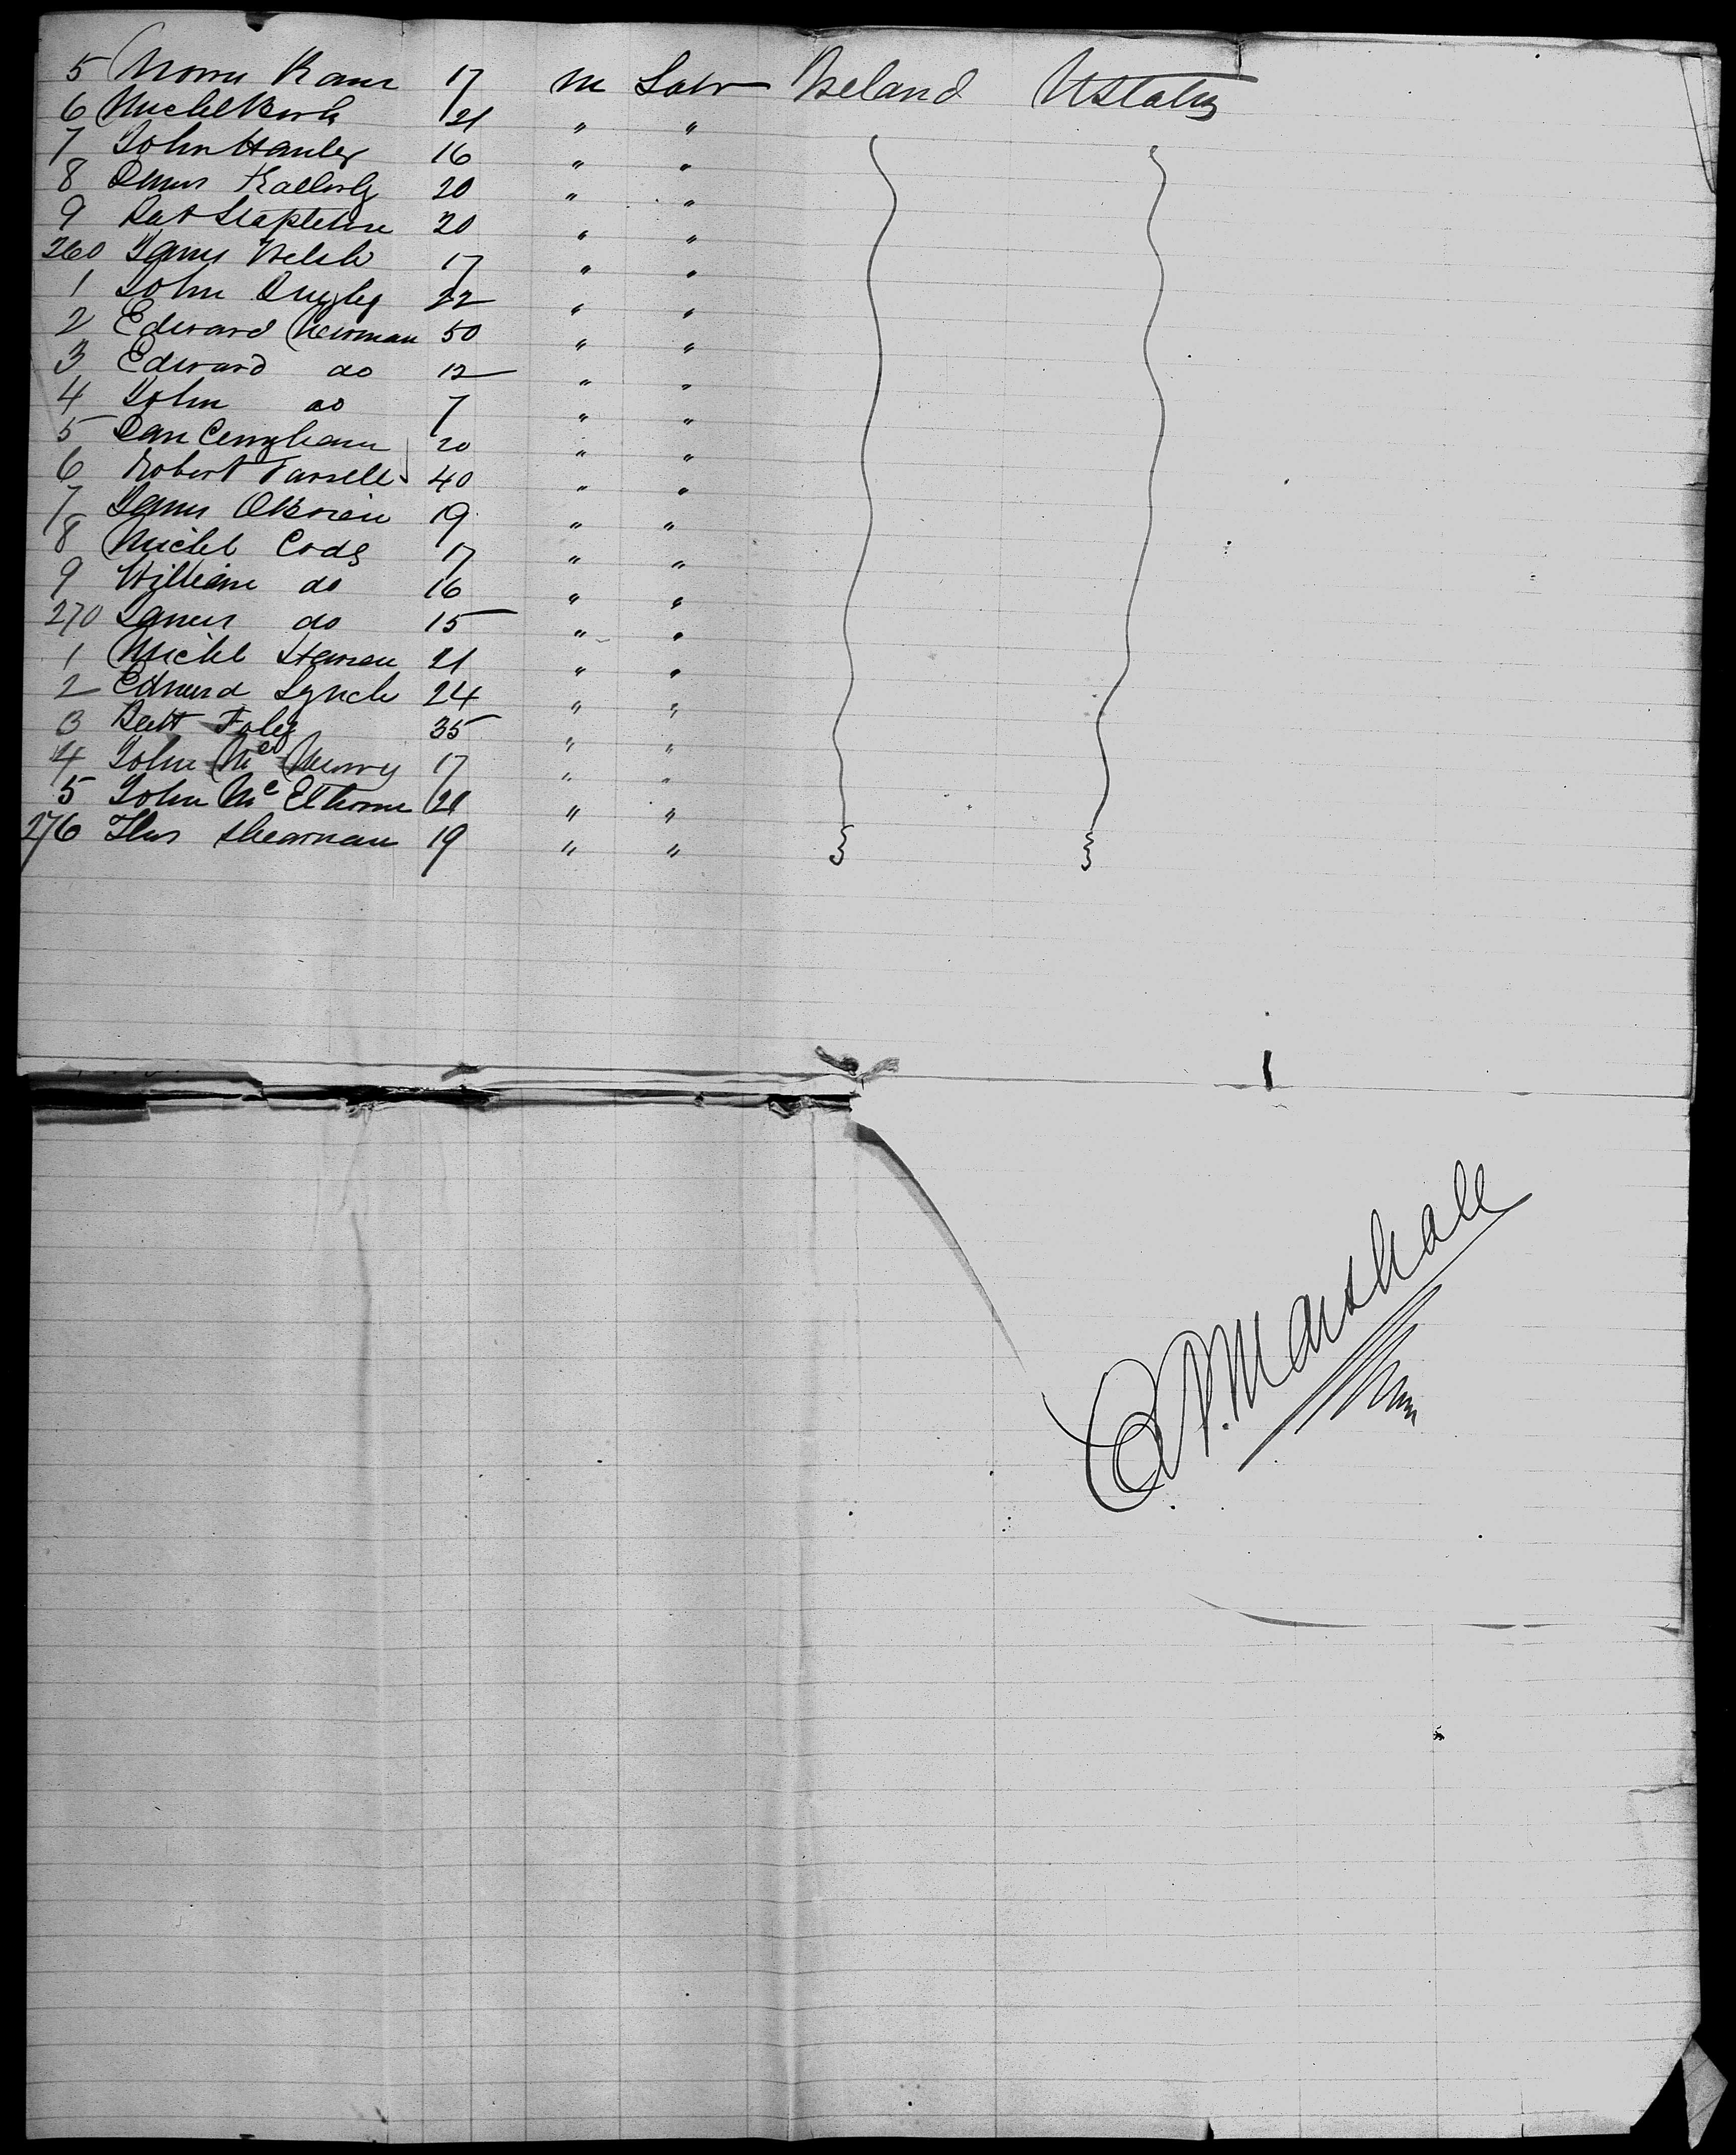 5 Morris Kane 17 M Labr Ireland UStates
6 Michl Burk 21 " "
7 John Hanley 16 " "
8 20 " "
9 Pat Stapleton 20 " "
260 James Welsh 17 " "
1 John Quigley 22 " "
2 Edward Newman 50 " "
3 Edward do 12 " "
4 John do 7 " "
5 Dan 20 " "
6 Robert Farrell 40 " "
7 James OBrien 19 " "
8 Michl Cody 17 " "
9 William do 16 " "
270 James do 15 " "
1 Michl 21 " "
2 Edmund Lynch 24 " "
3 Foley 35 " "
4 John Mc 17 " "
5 John Mc 21 " "
276 Thos Shearman 19 " "
Marshall